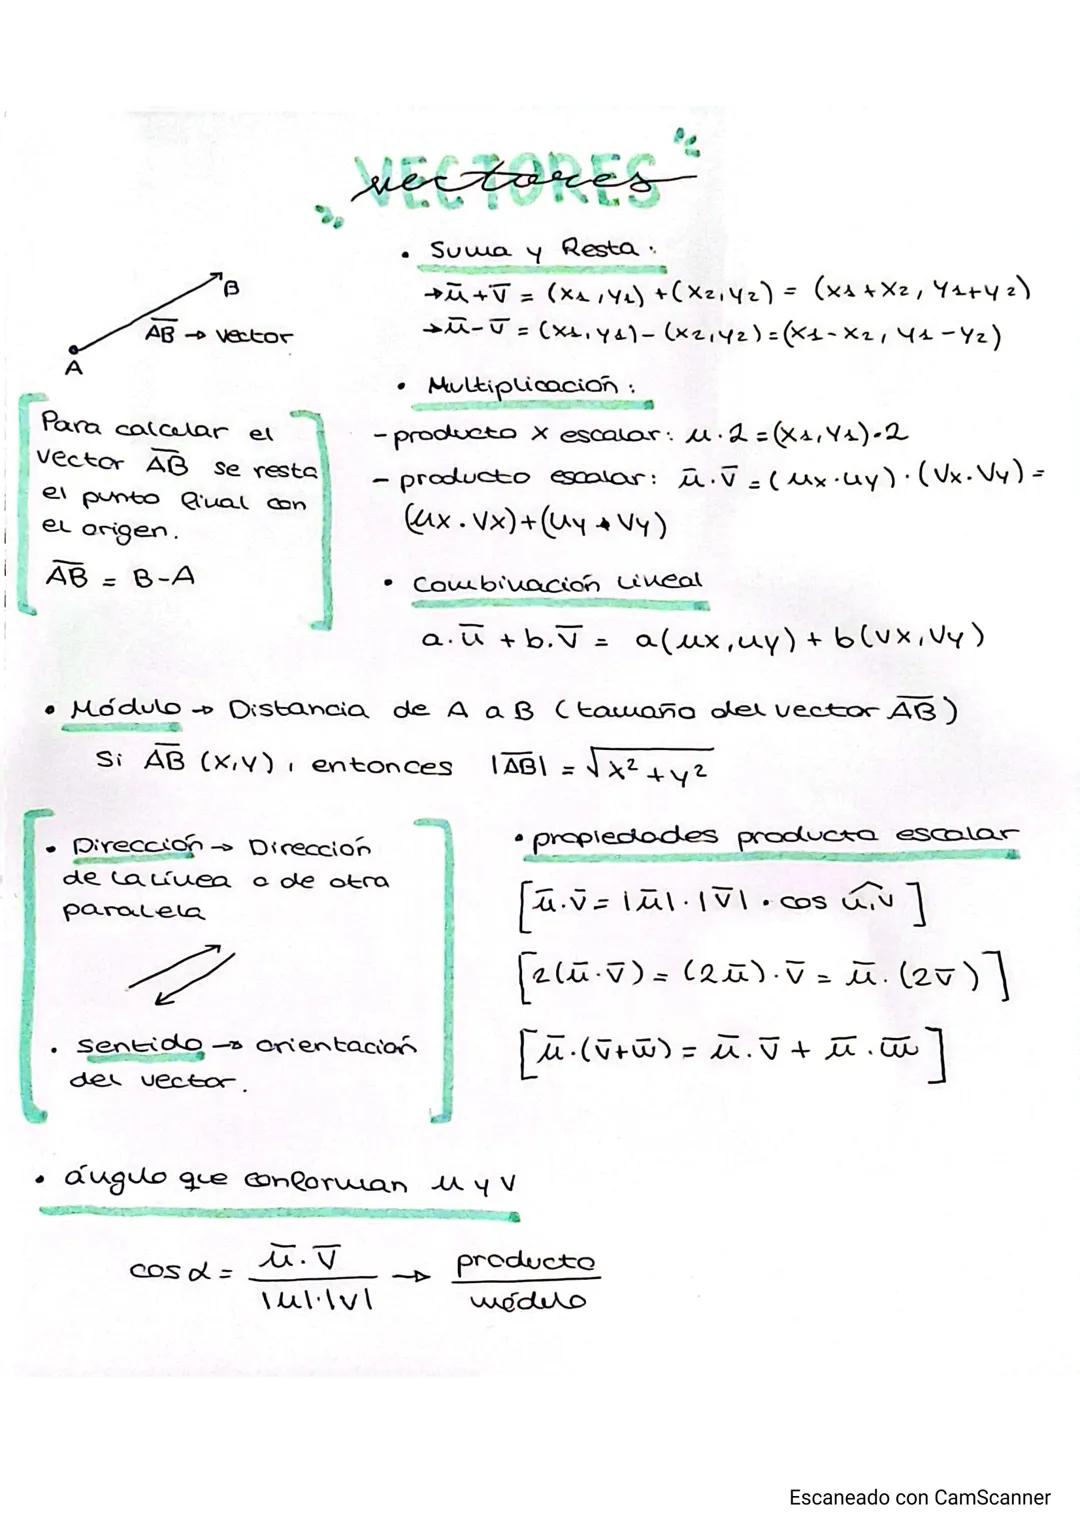 VECTORES
vectores
B
AB → vector
A
Para calcular el
vector AB se resta
el punto final con
el origen.
AB = B-A
• Suma y Resta:
→ū+v̄ = (x1,y1)+(x2,y2) = (x1+x2, y1+y2)
→ū-v̄ = (x1,y1)-(x2,y2)=(x1-x2, y1-y2)
• Multiplicación:
-producto x escalar: u·2=(x1,y1)·2
- producto escalar: ū·v̄=(ux·uy)·(vx·vy)=
(ux·vx)+(uy·vy)
• Combinación lineal
a·ū + b·v̄ = a(ux,uy)+b(vx,vy)
• Módulo → Distancia de A a B (tamaño del vector AB)
Si AB (x,y), entonces |AB| = √x²+y²
• Dirección → Dirección
de la línea o de otra
paralela
• sentido → orientación
del vector.
• propiedades producto escalar
[ū·v̄=|ū|·|v̄|·cos u,v]
[2(ū·v̄)=(2ū)·v̄=ū·(2v̄)]
[ū·(v̄+w̄)=ū·v̄+ū·w̄]
• ángulo que conforman u y v
cos α = ū·v̄ / |u|·|v| → producto / módulo
Escaneado con CamScanner